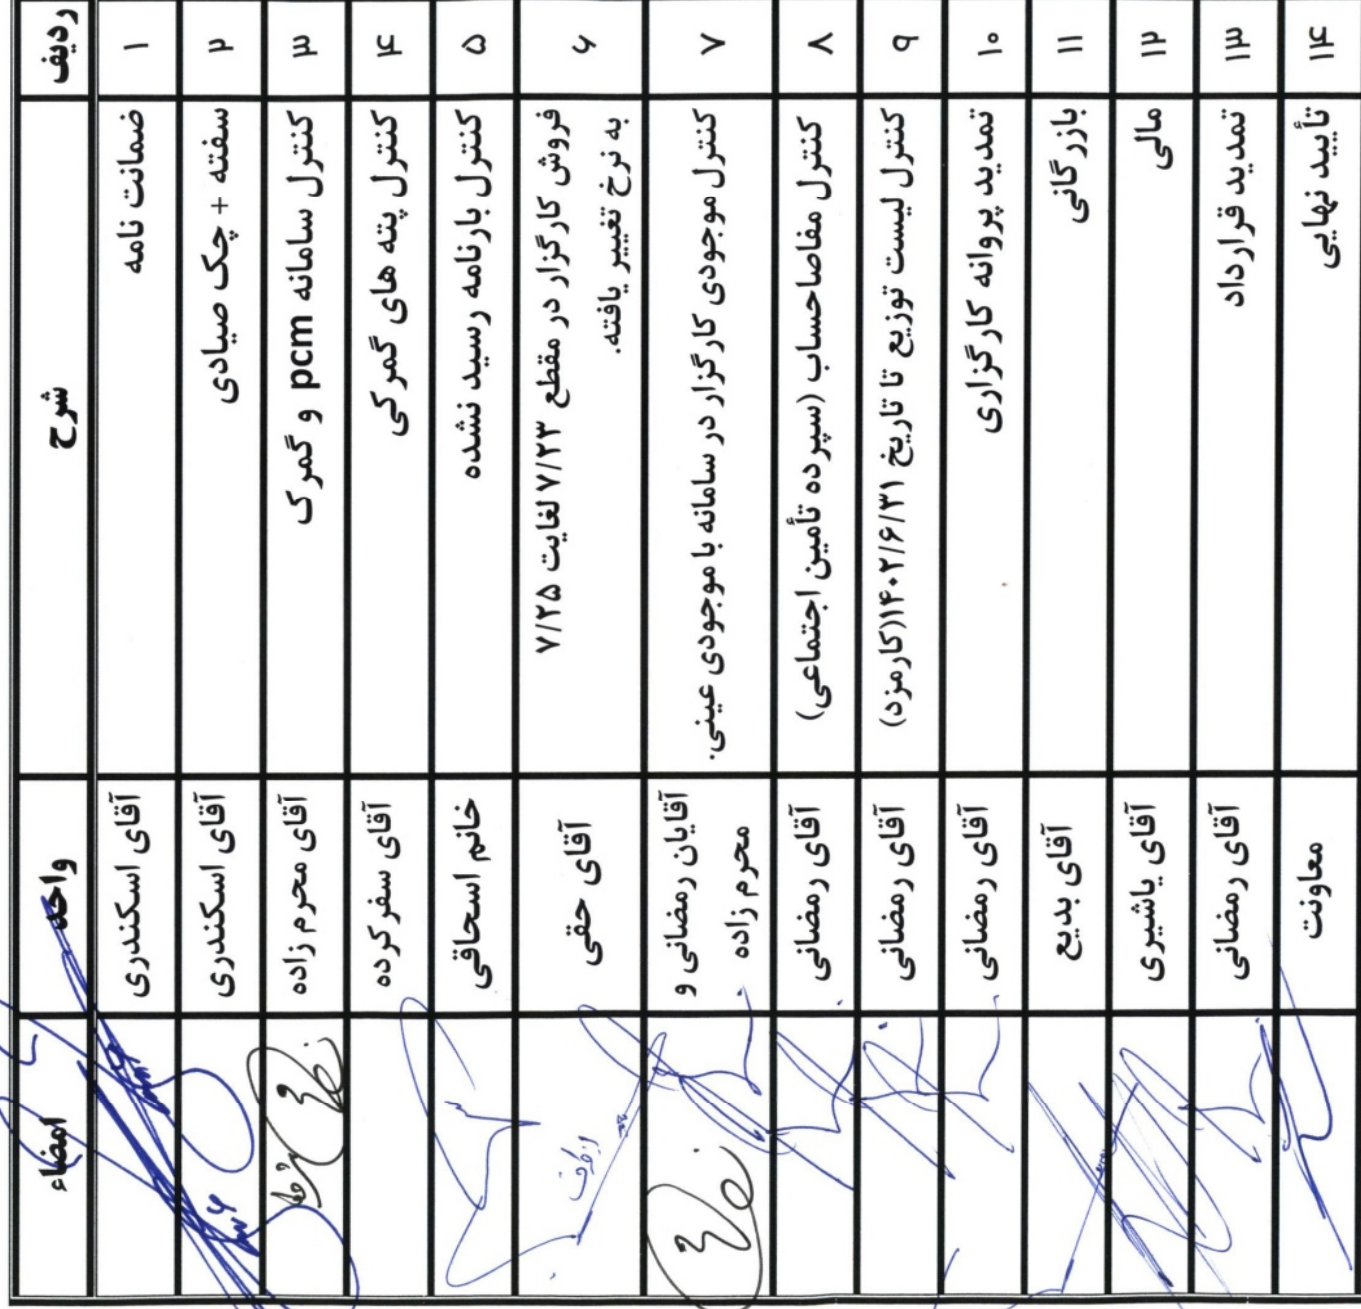 ردیف شرح واحد امضاء
۱ ضمانت نامه آقای اسکندری
۲ سفته + چک صیادی آقای اسکندری
۳ کنترل سامانه pcm و گمرک آقای محرم زاده
۴ کنترل پته های گمرکی آقای سفرکرده
۵ کنترل بارنامه رسید نشده خانم اسحاقی
۶ فروش کارگزار در مقطع ۷/۲۳ لغایت ۷/۲۵
به نرخ تغییر یافته. آقای حقی
۷ کنترل موجودی کارگزار در سامانه با موجودی عینی. آقایان رمضانی و
محرم زاده
۸ کنترل مفاصاحساب (سپرده تأمین اجتماعی) آقای رمضانی
۹ کنترل لیست توزیع تا تاریخ ۱۴۰۲/۶/۳۱(کارمزد) آقای رمضانی
۱۰ تمدید پروانه کارگزاری آقای رمضانی
۱۱ بازرگانی آقای بدیع
۱۲ مالی آقای یاشیری
۱۳ تمدید قرارداد آقای رمضانی
۱۴ تأیید نهایی معاونت